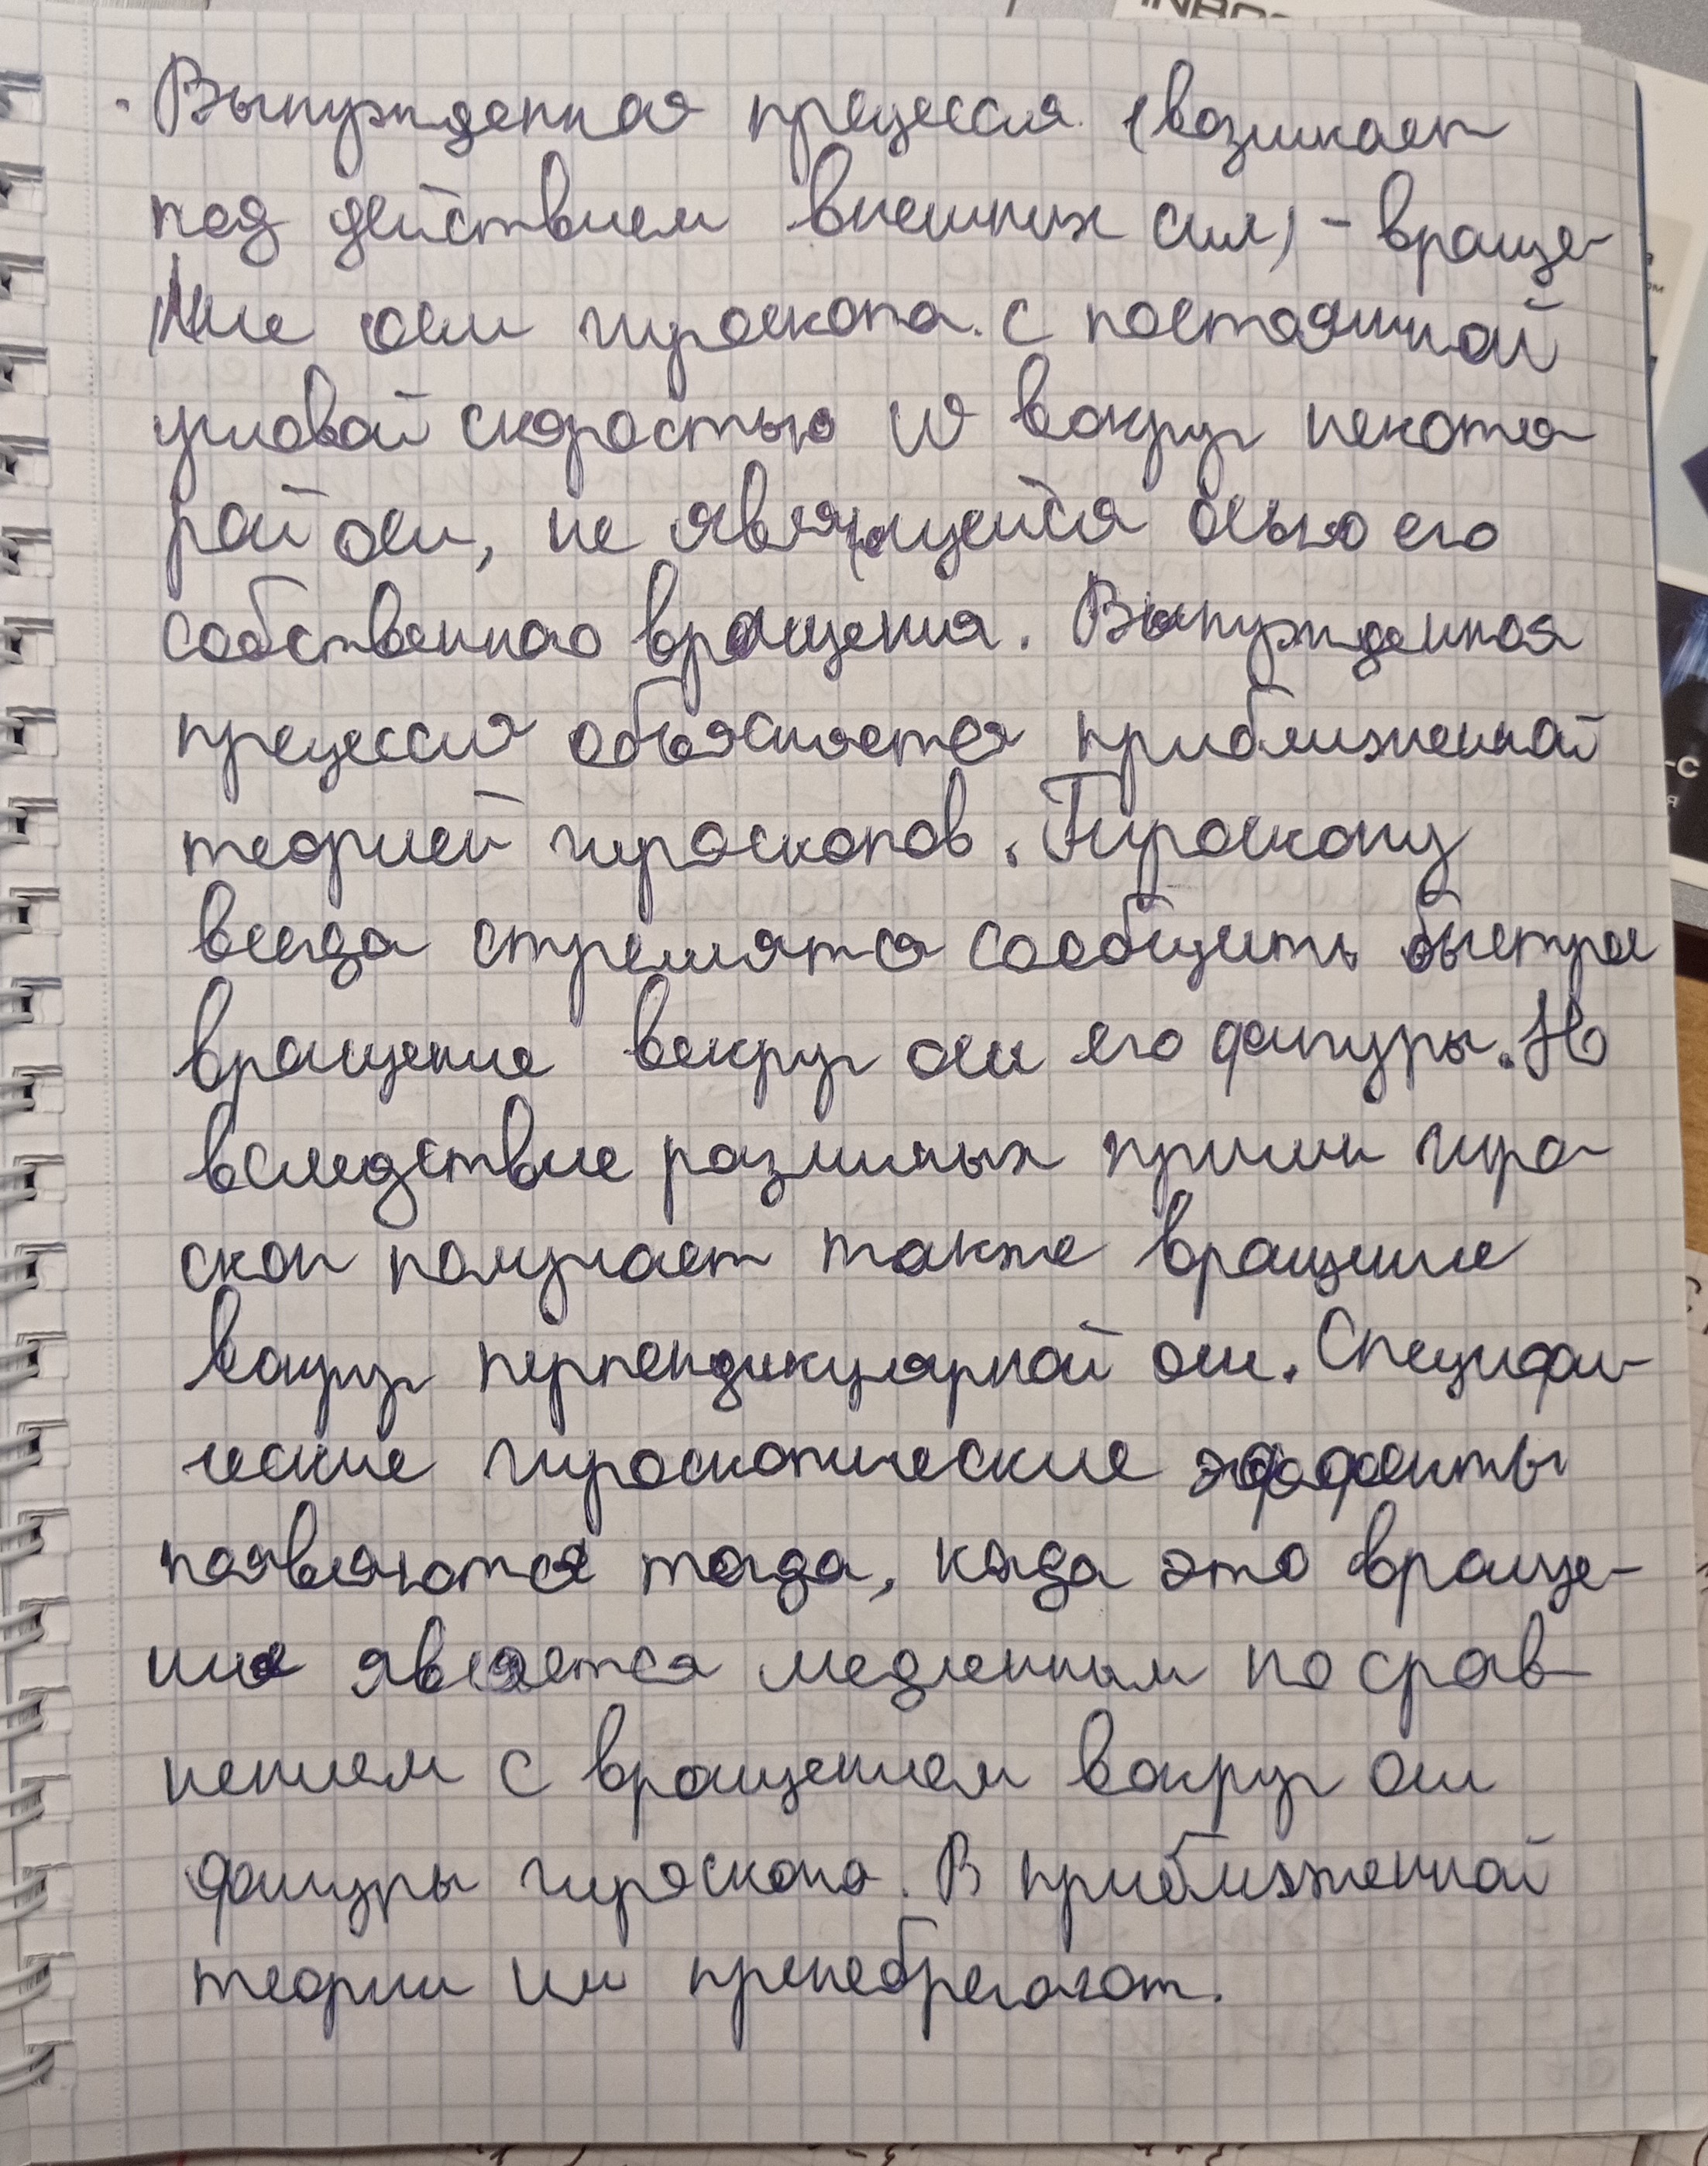 INBO
· Вынужденная прецессия (возникает
под действием внешних сил) - враще-
ние оси гироскопа с постоянной
угловой скоростью ω вокруг некото
рой оси, не являющейся осью его
собственного вращения. Вынужденная
прецессия объясняется приближенной
теорией гироскопов. Гироскопу
всегда стремятся сообщить быстрое
вращение вокруг оси его фигуры. Но
вследствие различных причин гиро-
скоп получает также вращение
вокруг перпендикулярной оси. Специфи-
ческие гироскопические эффекты
появляются тогда, когда это враще-
ние является медленным по срав-
нением с вращением вокруг оси
фигуры гироскопа. В приближенной
теории им пренебрегают.